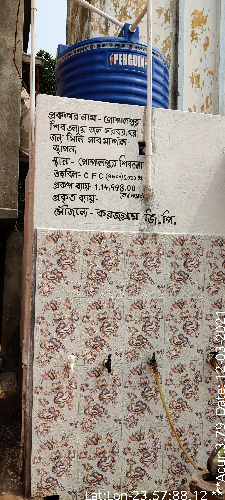 PENGUIN
প্রকল্পের নাম - গোপালপুর
শিবতলায় জল সরবরাহের
জন্য মিনি সাবমার্সিবল
স্থাপন,
স্থান - গোপালপুর শিবতলা
তহবিল - C F C
প্রকল্প ব্যয়: 1,14,998.00
প্রকৃত ব্যয় -
সৌজন্যে - করজগ্রাম জি.পি.
Lat:Lon-23.57:88.12
Acur:3.79 Date:12-01-2021